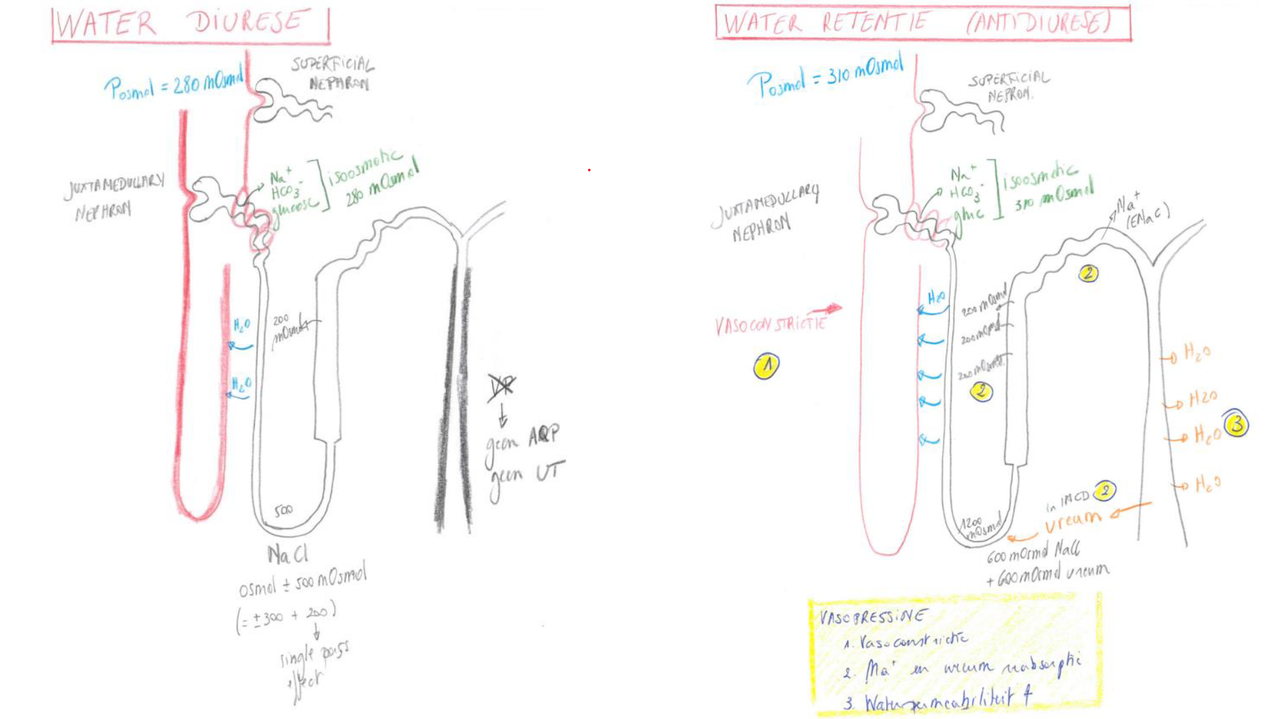 WATER DIURESE
Posmol = 280 mOsmol
SUPERFICIAL
NEPHRON
JUXTAMEDULLARY
NEPHRON
Na⁺
HCO₃⁻
glucose
isoosmotic
280 mOsmol
H₂O
H₂O
200
mOsmol
500
NaCl
osmol ± 500 mOsmol
(= ± 300 + 200)
single pass
effect
geen AQP
geen UT
WATER RETENTIE (ANTIDIURESE)
Posmol = 310 mOsmol
SUPERFICIAL
NEPRON.
JUXTAMEDULLARY
NEPHRON
Na⁺
HCO₃⁻
gluc
isoosmotic
310 mOsmol
Na⁺
(ENaC)
2
VASOCONSTRICTIE
1
H₂O
200 mOsmol
200 mOsmol
200 mOsmol
2
H₂O
H2O
H₂O
3
H₂O
in IMCD 2
ureum
1200
mOsmol
600 mOsmol NaCl
+ 600 mOsmol ureum
VASOPRESSINE
1. Vasoconstrictie
2. Na⁺ en ureum reabsorptie
3. Waterpermeabiliteit ↑